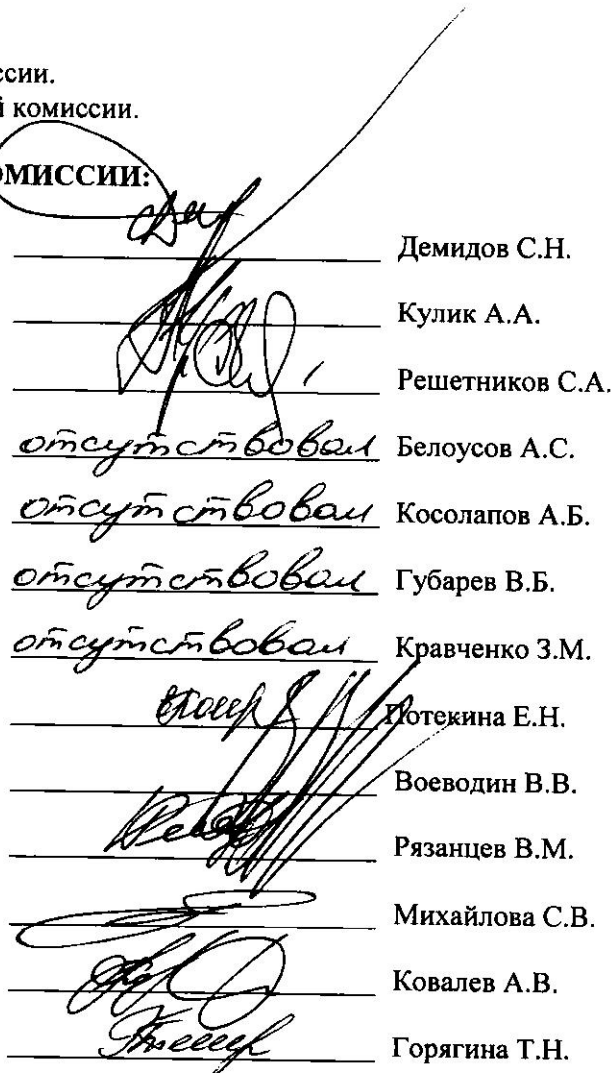 ссии.
й комиссии.
ОМИССИИ:
Демидов С.Н.
Кулик А.А.
Решетников С.А.
отсутствовал Белоусов А.С.
отсутствовал Косолапов А.Б.
отсутствовал Губарев В.Б.
отсутствовал Кравченко З.М.
Потекина Е.Н.
Воеводин В.В.
Рязанцев В.М.
Михайлова С.В.
Ковалев А.В.
Горягина Т.Н.